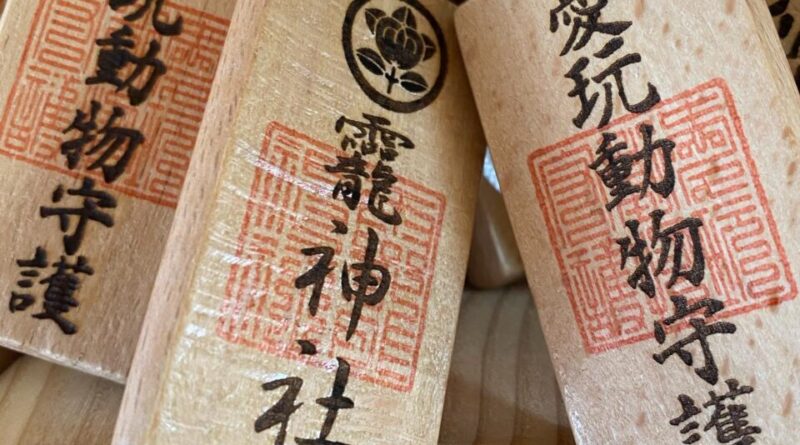 玩動物守護
龗神社
愛玩動物守護